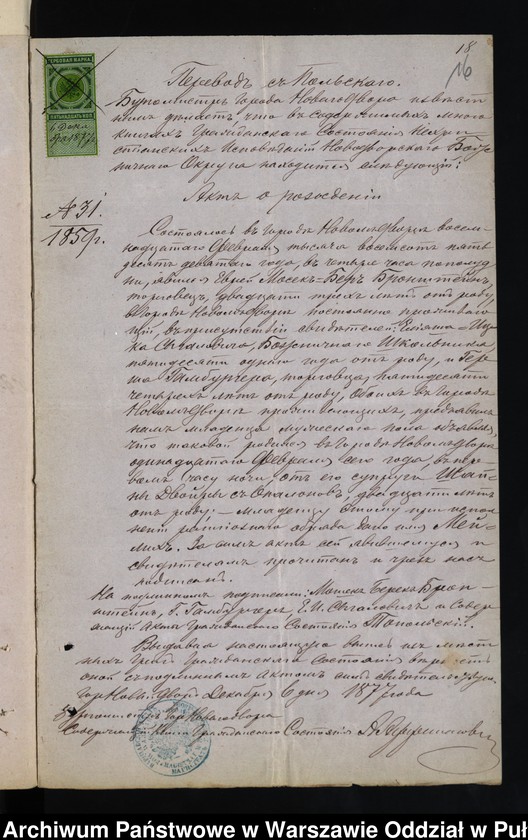 18
16
ГЕРБОВАЯ МАРКА
6 Дек.
1877
Переводъ съ Польскаго.
Бургомистръ Города Новаго двора извѣст
что въ содержимыхъ мною
книгахъ Гражданскаго Состоянія Нехри
стіанскихъ Исповѣданій Новодворскаго Бож
ничнаго Округа находится слѣдующій:
Актъ о рожденіи
№ 31.
1859 г.
Состоялось въ Городѣ Новомъ-Дворѣ восем
надцатаго Февраля тысяча восемсотъ пять
десятъ девятаго года, въ четыре часа пополу
дни, явился Еврей Мосекъ-Беръ Бронштейнъ,
торговецъ, двадцати трехъ лѣтъ отъ роду,
въ Городѣ Новомъ-Дворѣ постоянно проживаю
щій, въ присутствіи свидѣтелей:
Сѣгаловича, Божничнаго Школьника,
пятидесяти одного года отъ роду, и Гер
ша Гамбургера, торговца, пятидесяти
четырехъ лѣтъ отъ роду, обоихъ въ Городѣ
Новомъ-Дворѣ проживающихъ, предъявилъ
намъ младенца мужескаго пола объявляя,
что таковой родился въ Городѣ Новомъ-Дворѣ
одинадцатаго Февраля сего года, въ пер
вомъ часу ночи, отъ его супруги Шай
ны Двойры съ двадцати лѣтъ
отъ роду; – младенцу этому при испол
неніи религіознаго обряда дано имя Мей
лихъ. За симъ актъ сей явившемуся и
свидѣтелямъ прочитанъ и чрезъ насъ
подписанъ.
На подлинномъ подписали: Мошекъ Берекъ Брон-
штейнъ, Г. Гамбургеръ, Е. И. Сѣгаловичъ и Содер
жащій Акты Гражданскаго Состоянія
Выдавая настоящую выпись изъ
книгъ Гражданскаго Состоянія вѣрность
оной съ подлиннымъ Актомъ симъ свидѣтельствую
Гор. Новый Дворъ Декабря 6 дня 1877 года
Бургомистръ Гор. Новаго двора
Содержащій Книги Гражданскаго Состоянія
Archiwum Państwowe w Warszawie Oddział w Puł